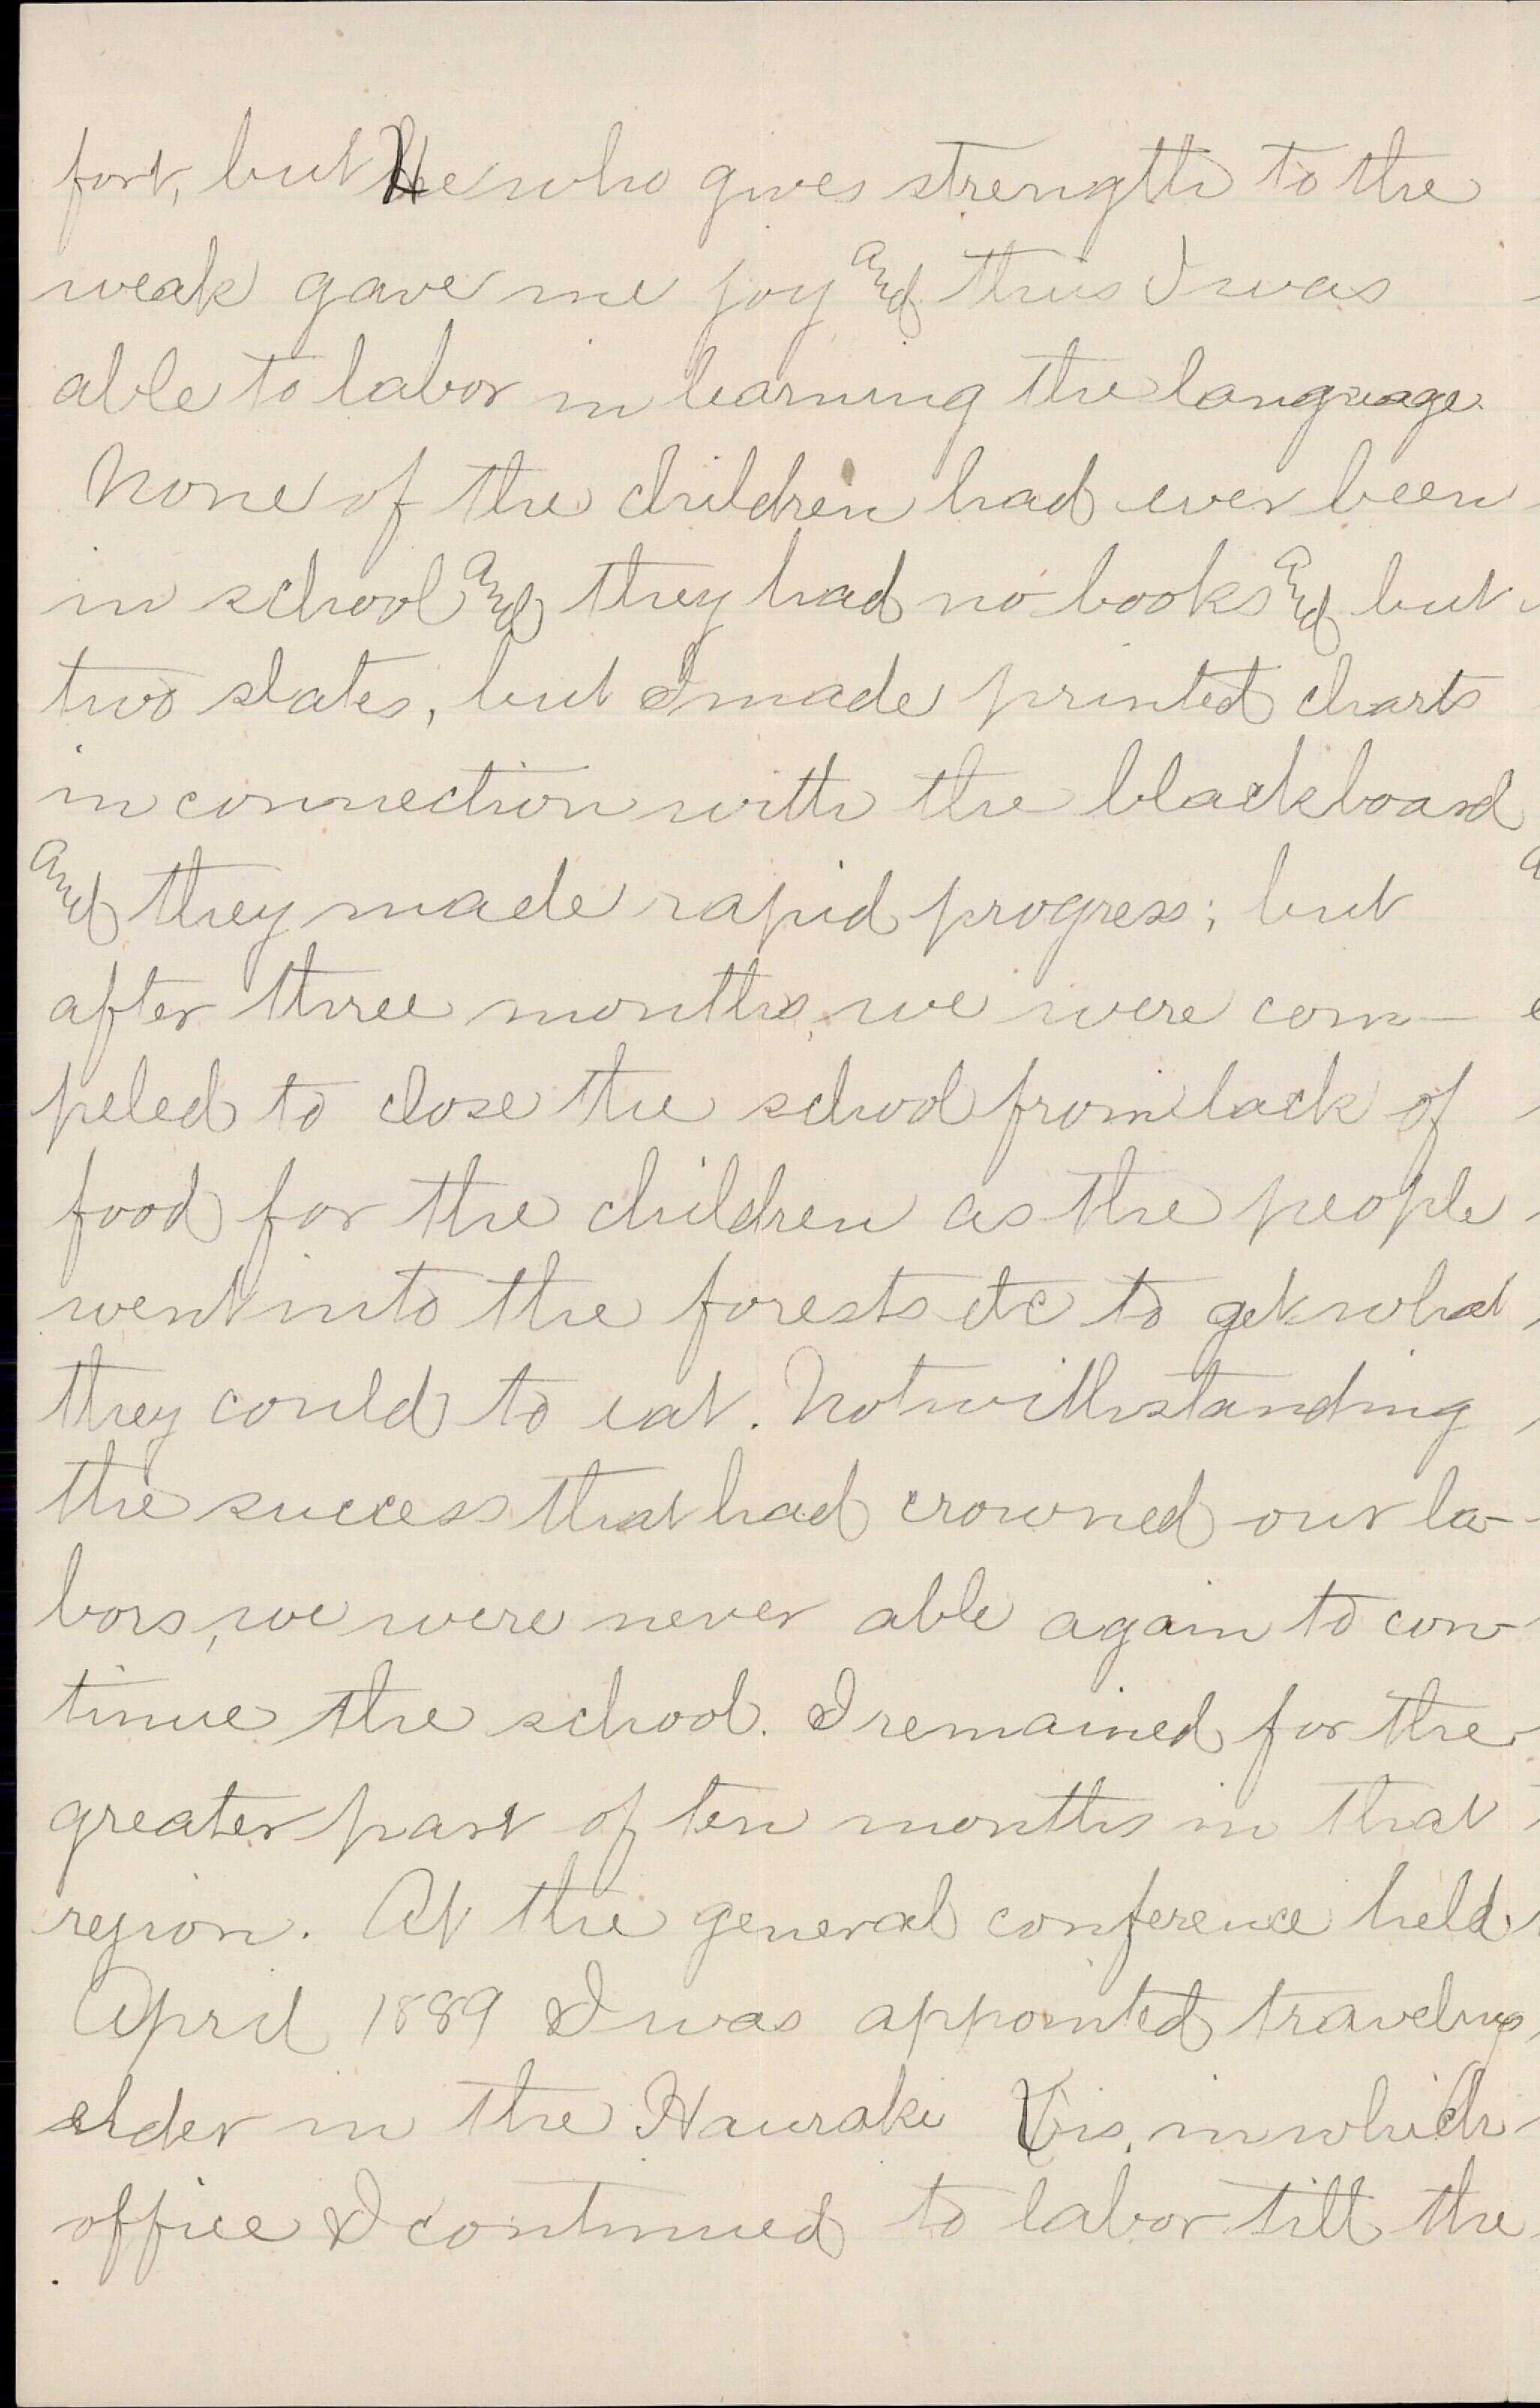 fort, but He who gives strength to the
weak gave me joy and thus I was
able to labor in learning the language.
None of the children had ever been
in school and they had no books and but
two slates, but I made printed charts
in connection with the blackboard
and they made rapid progress; but
after three months, we were com-
peled to close the school from lack of
food for the children as the people
went into the forests etc to get what
they could to eat. Notwithstanding
the success that had crowned our la-
bors, we were never able again to con-
tinue the school. I remained for the
greater part of ten months in that
region. At the general conference held
April 1889 I was appointed traveling
elder in the Hauraki Dis. in which
office I continued to labor till the